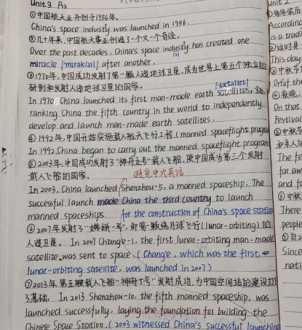 Unit 3. A3
①中国航天业开创于1956年.
China's space industry was launched in 1956.
②几十年来,中国航天事业创造了一个又一个奇迹。
Over the past decades. China's space industry has created one
miracle [mirəkl] after another.
③1970年,中国成功发射了第一颗人造地球卫星,成为世界上第五个独立
研制和发射人造地球卫星的国家。
In 1970 China launched its first man-made earth satellites,
ranking China the fifth country in the world to independently
develop and launch man-made earth satellites.
④1992年,中国开始实施载人航天飞行工程。(manned spaceflight program
In 1992 China began to carry out the manned spaceflight program
⑤2003年,中国成功发射了"神舟五号"载人飞船,使中国成为第三个发射
载人飞船的国家。
In 2003, China launched Shenzhou-5, a manned spaceship. The
successful launch made China the third country to launch
manned spaceships. for the construction of China's space station
⑥2007年发射了"嫦娥一号",即第一颗绕月球飞行(lunar-orbiting)的
人造卫星。In 2007 Chang'e-1, the first lunar-orbiting man-made
satellite, was sent to space. (Chang'e, which was the first
lunar-orbiting satellite, was launched in 2007)
⑦2013年,第五艘载人飞船"神舟十号"发射成功,为中国空间站的建设打
了基础。In 2013 Shenzhou-10, the fifth manned spaceship, was
launched successfully, laying the foundation for building the
Chinese Space Station. (2013 witnessed China's successful launching